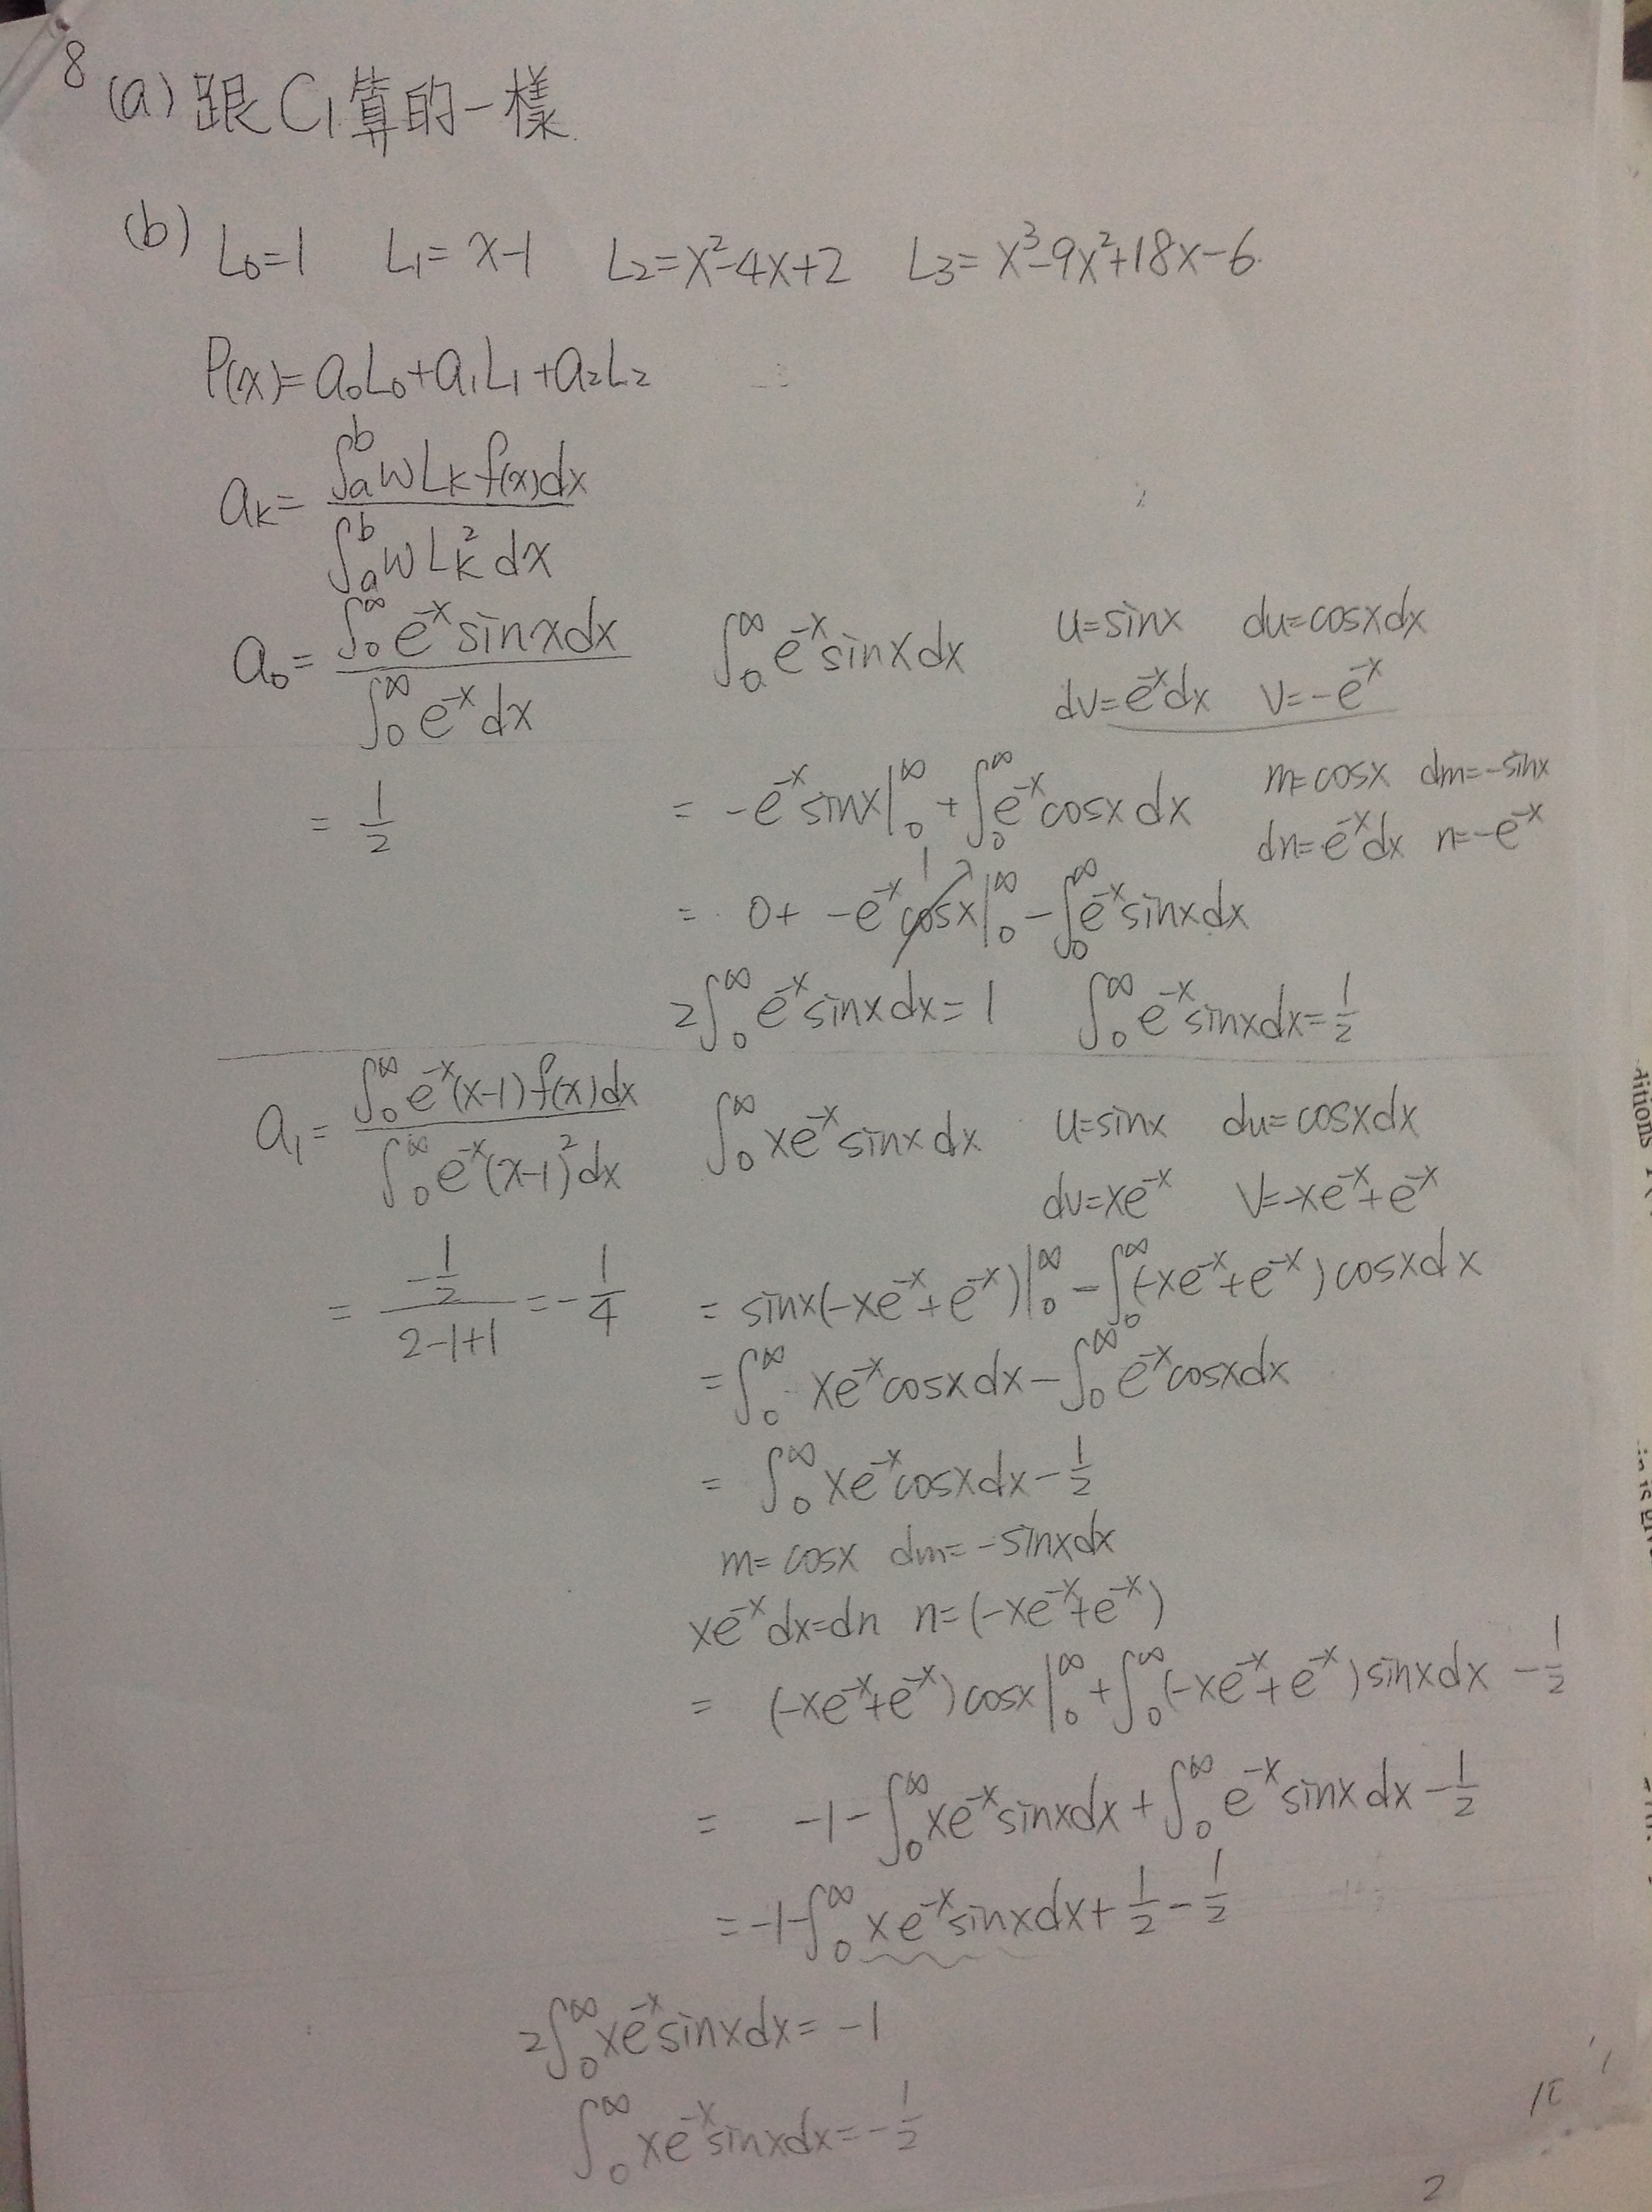 8 (a) 跟C₁算的一樣
(b) L₀=1 L₁= x-1 L₂=x²-4x+2 L₃= x³-9x²+18x-6
P(x)= a₀L₀+a₁L₁+a₂L₂
aₖ= ∫ₐᵇ w Lₖ f(x)dx / ∫ₐᵇ w Lₖ² dx
a₀= ∫₀^∞ e^-x sinxdx / ∫₀^∞ e^-x dx
= 1/2
∫₀^∞ e^-x sinxdx u=sinx du=cosxdx
dv=e^-x dx v=-e^-x
= -e^-x sinx|₀^∞ + ∫₀^∞ e^-x cosx dx m=cosx dm=-sinx
dn=e^-x dx n=-e^-x
= 0+ -e^-x cosx|₀^∞ - ∫₀^∞ e^-x sinxdx
1
2∫₀^∞ e^-x sinxdx=1 ∫₀^∞ e^-x sinxdx=1/2
a₁= ∫₀^∞ e^-x(x-1)f(x)dx / ∫₀^∞ e^-x(x-1)²dx
= -1/2 / 2-1+1 =-1/4
∫₀^∞ xe^-x sinxdx u=sinx du=cosxdx
dv=xe^-x v=-xe^-x+e^-x
= sinx(-xe^-x+e^-x)|₀^∞ - ∫₀^∞(-xe^-x+e^-x)cosxdx
=∫₀^∞ xe^-x cosxdx-∫₀^∞ e^-x cosxdx
= ∫₀^∞ xe^-x cosxdx-1/2
m= cosx dm= -sinxdx
xe^-x dx=dn n=(-xe^-x+e^-x)
= (-xe^-x+e^-x)cosx|₀^∞+∫₀^∞(-xe^-x+e^-x)sinxdx -1/2
= -1-∫₀^∞ xe^-x sinxdx+∫₀^∞ e^-x sinxdx-1/2
=-1-∫₀^∞ xe^-x sinxdx+1/2-1/2
2∫₀^∞ xe^-x sinxdx= -1
∫₀^∞ xe^-x sinxdx=-1/2
2